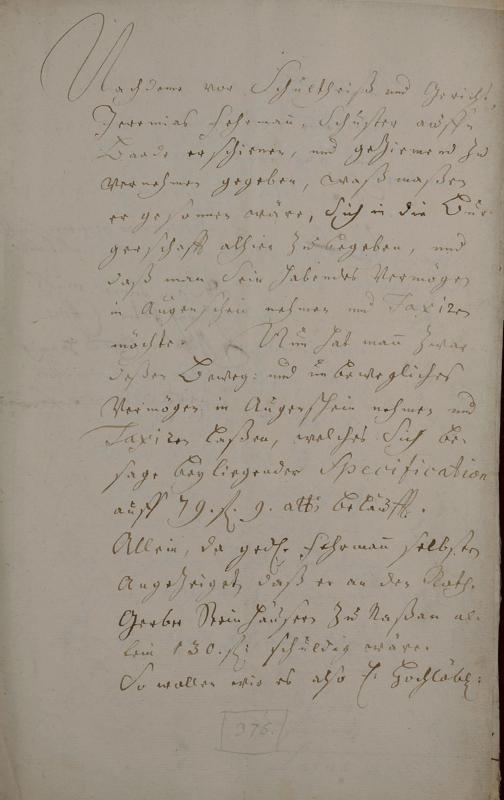 Nachdeme vor Schultheiß und Gericht,
Jeremias Fehrmann, Schuster auff
erschienen, und geziemend zu
vernehmen gegeben, waß maßen
er gesonnen wäre, sich in die Bur-
gerschafft alhier zu begeben, und
daß man sein habendes Vermögen
in Augenschein nehmen und Taxiren
möchte. Nun hat mann zwar
deßen Beweg: und unbewegliches
Vermögen in Augenschein nehmen und
Taxiren laßen, welches sich be-
sage beyliegender Specification
auff 79. fl. 9. albs beläufft.
Allein, da gedl. Fehrmann selbsten
Angezeiget, daß er an den Roth-
Gerber Steinhäusern zu Naßau al-
lein 130. fl. schuldig wäre.
So wollen wir es also E. Hochlöbl:
376.